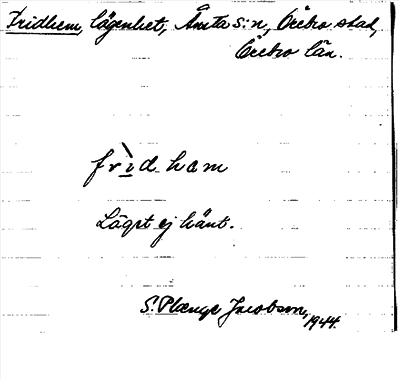 Fridhem, lägenhet, Ånsta s:n, Örebro stad,
Örebro län.
fri̲d ham
Läget ej känt.
S. Plænge Jacobson,
1944.